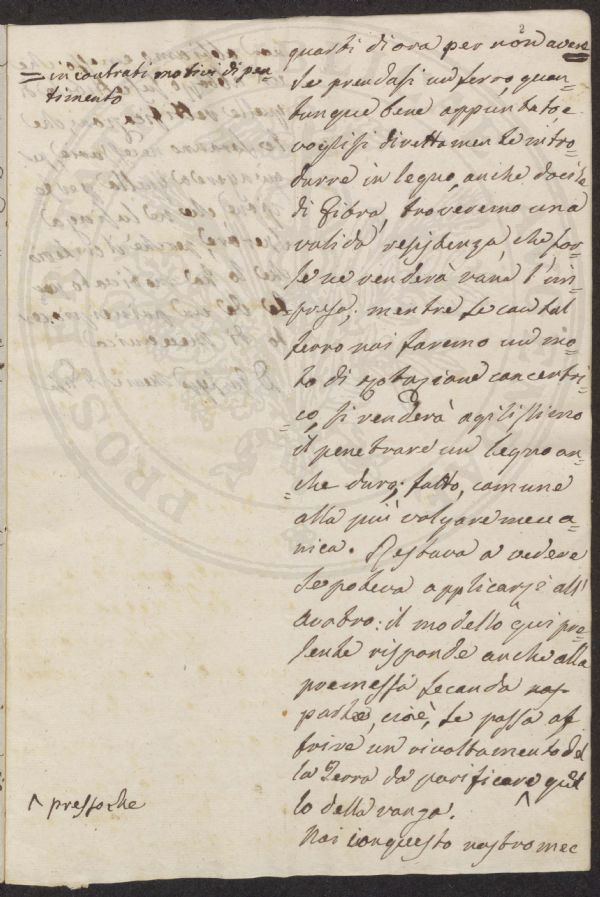 quarti di ora per non avere
= incontrati motivi di pen-
timento
Se prendasi un ferro, quan-
tunque bene appuntato, e
voglisi direttamente intro-
durre in legno, anche docile
di fibra, troveremo una
valida resistenza, che for-
se ne renderà vana l'im-
presa; mentre se con tal
ferro noi faremo un mo-
to di rotazione concentri-
co, si renderà agilissimo
il penetrare un legno an-
che duro; fatto, comune
alla più volgare mecca-
nica. Restava a vedere
se poteva applicarsi all'
Aratro: il modello qui pre-
sente risponde anche alla
promessa seconda
parte, cioè, se possa of
frire un rivoltamento del
la Terra da parificare quel
^ pressoche
lo della vanga.
Noi con questo nostro mec